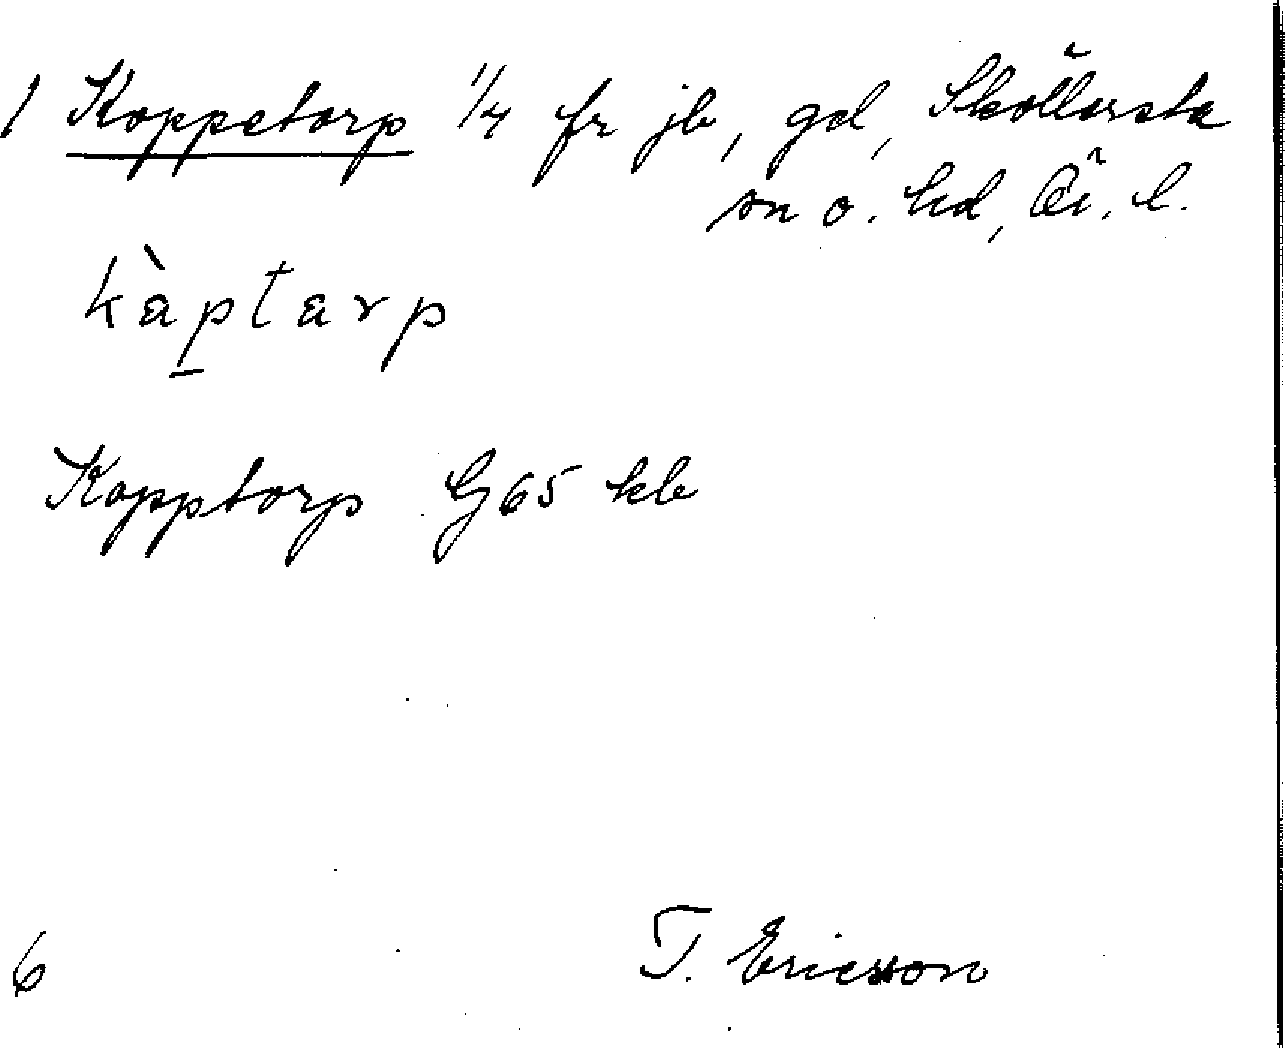 1 Koppetorp 1/4 fr jb, gd, Sköllersta
sn o. hd, Ör. l.
kàptarp
Kopptorp G65 kb
6 T. Ericsson